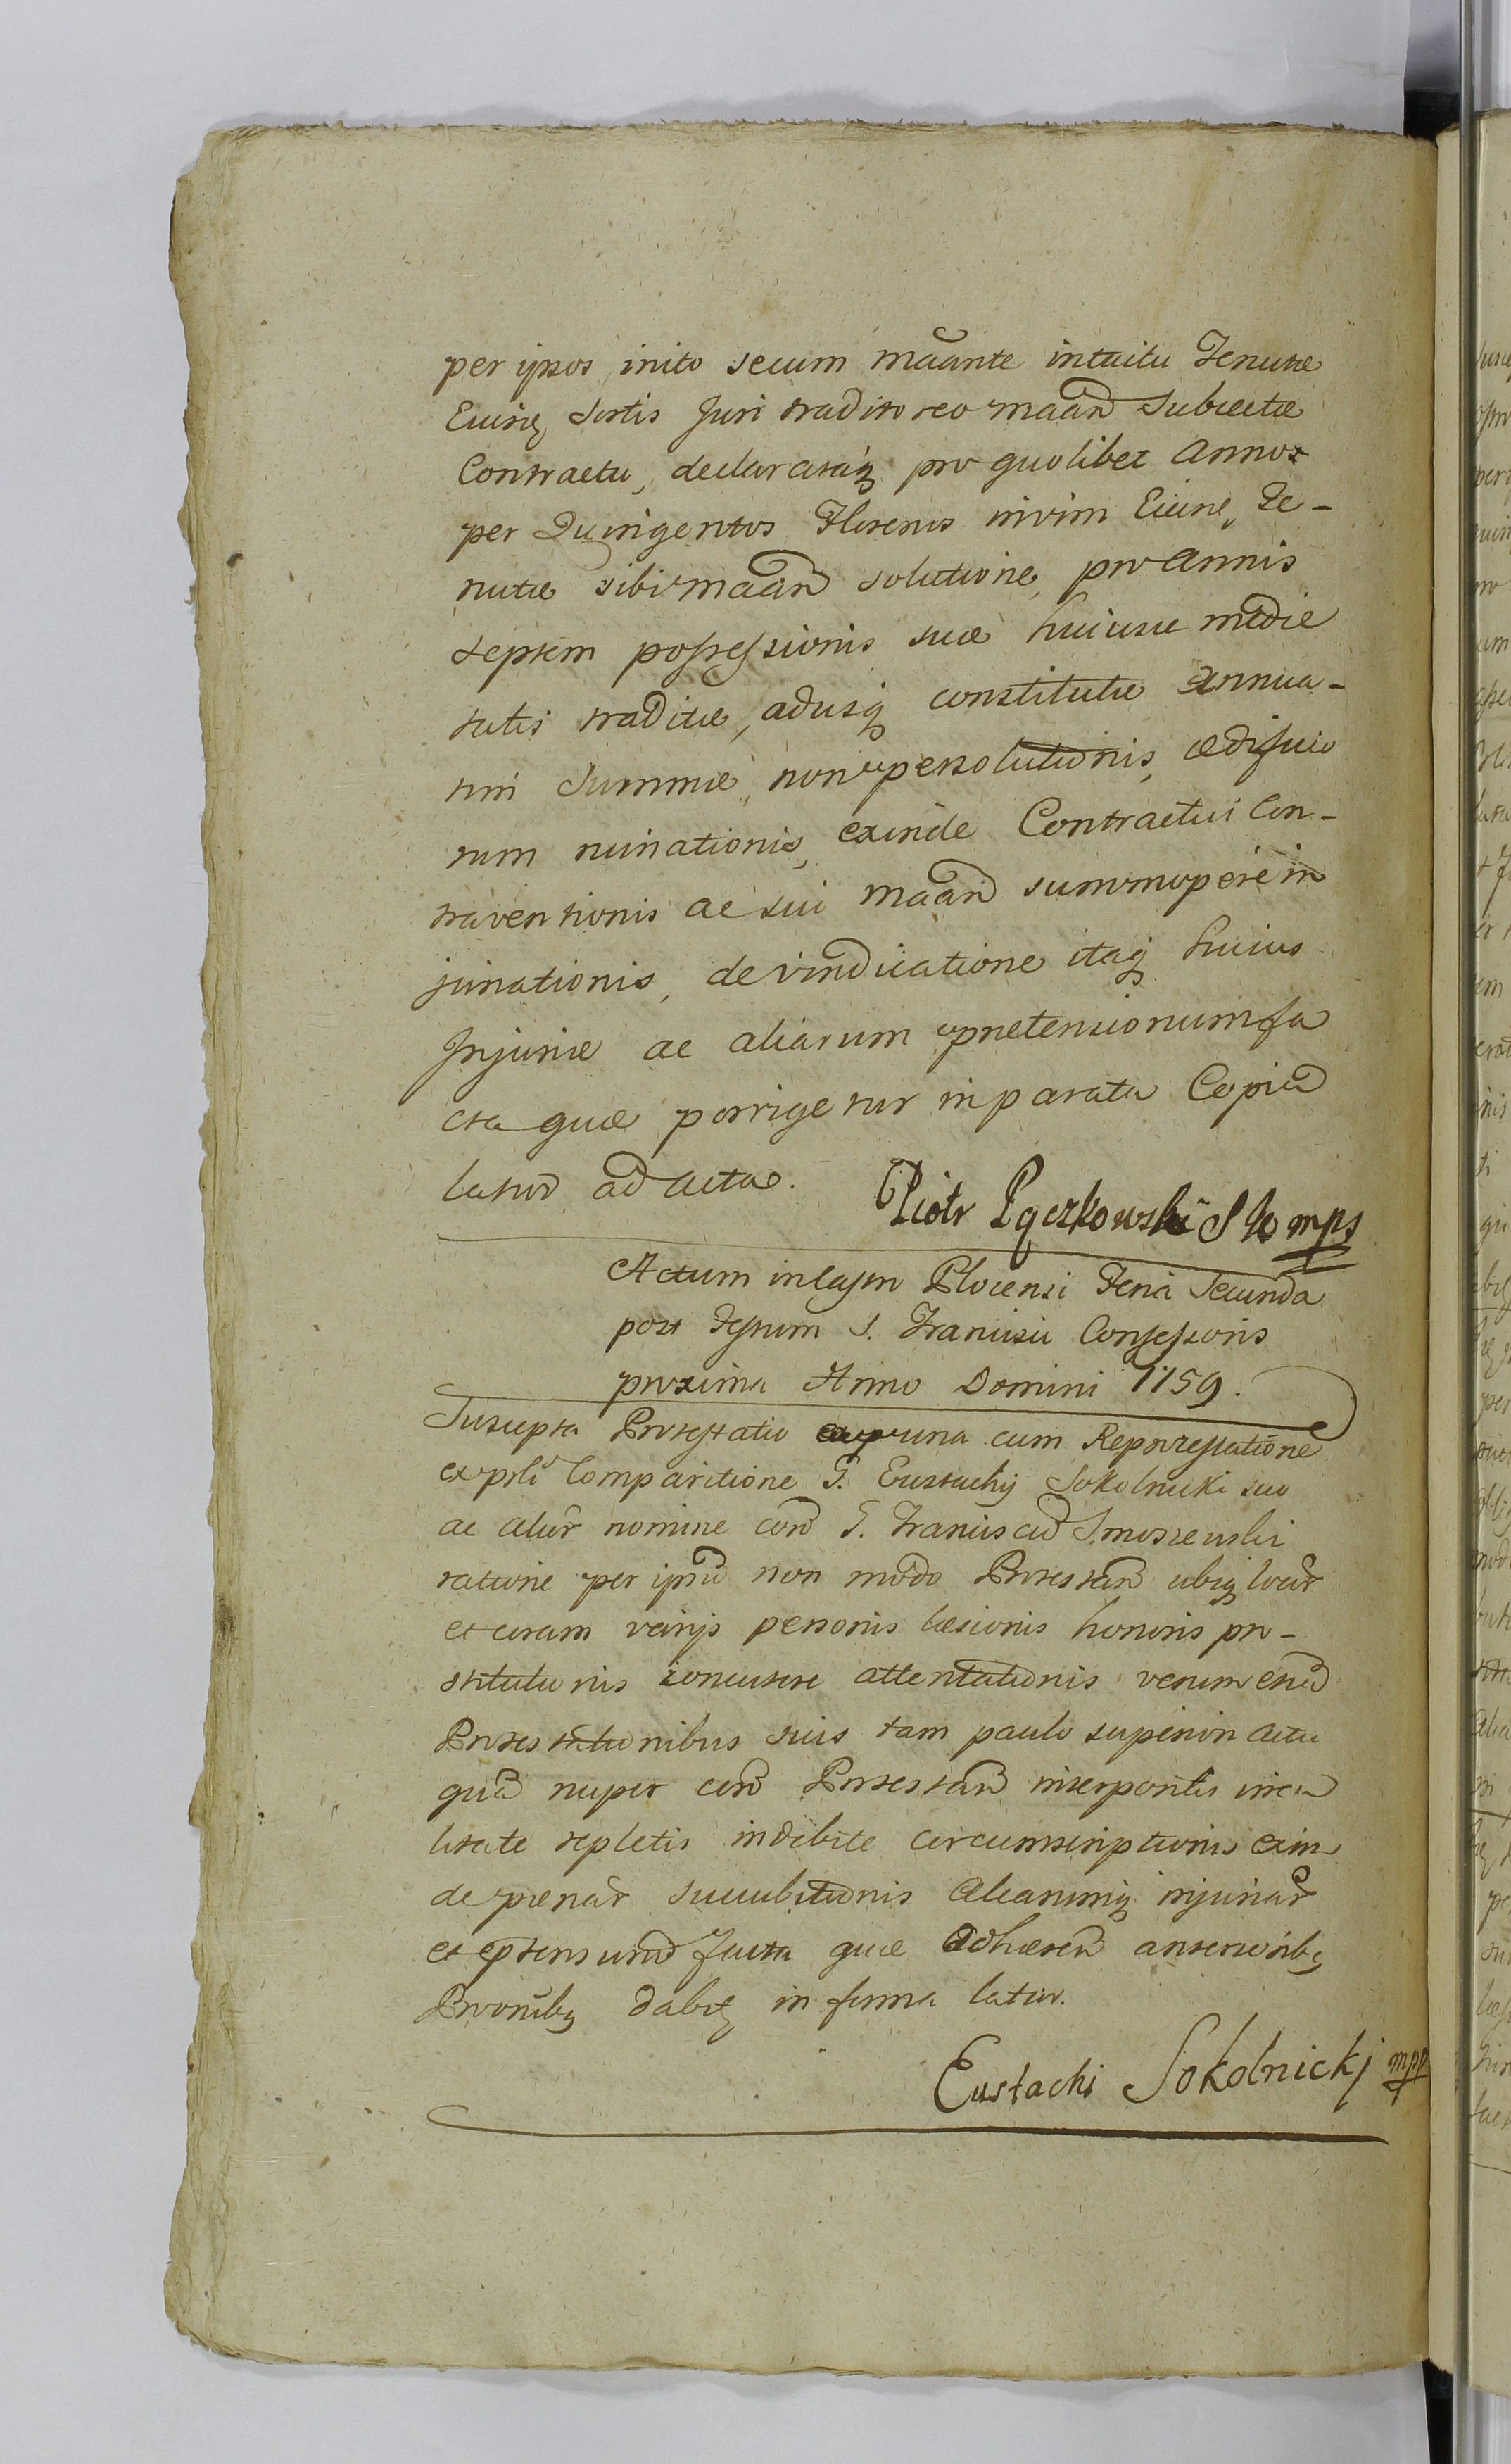 per ipsos inito secum maãnte intuitu Tenutæ
Eiusq sortis Juri traditoreo maañ Subiectæ
Contractu, declarataq pro quolibet Anno
per Quingentos Florenos intuitu Eiusd Te-
nutæ sibi maañ solutione, pro Annis
septem possessionis suæ huicusce medie
tatis traditæ, adusq constitutæ Annua-
tim Summæ non persolutionis, ædificio
rum ruinationis, exinde Contractui Con-
traventionis ac sui maañ summopere in
juriationis, de vindicatione itaq huius
Injuriæ ac aliarum prætensionum fa
cta quæ porrigetur in parata Copia
latur ad acta.
Piotr Pączkowski S K mps
Actum in Castro Plocensi Feria Secunda
post Festum S. Francisci Confessoris
proxima Anno Domini 1759.
Suscepta Protestatio una cum Reprotestatione
ex psli Comparitione G. Eustachij Sokolnicki suo
ac alior nomine con G. Franciscum Smoszewski
ratione per ipsũ non modo Protestañ ubiq locor
et coram varijs personis læsionis honoris pro-
stitutionis attentationis verum etiã
Protestationibus suis tam paulo superiori actu
quã nuper con Protestañ interpositis
litate repletis indebite circumscriptionis exin
de pœnar succubitionis aliarumq injuriar
et ptensionũ facta quæ adhæreñ anteriorib
Proñib dabit in forma latur.
Eustachi Sokolnickj mpp